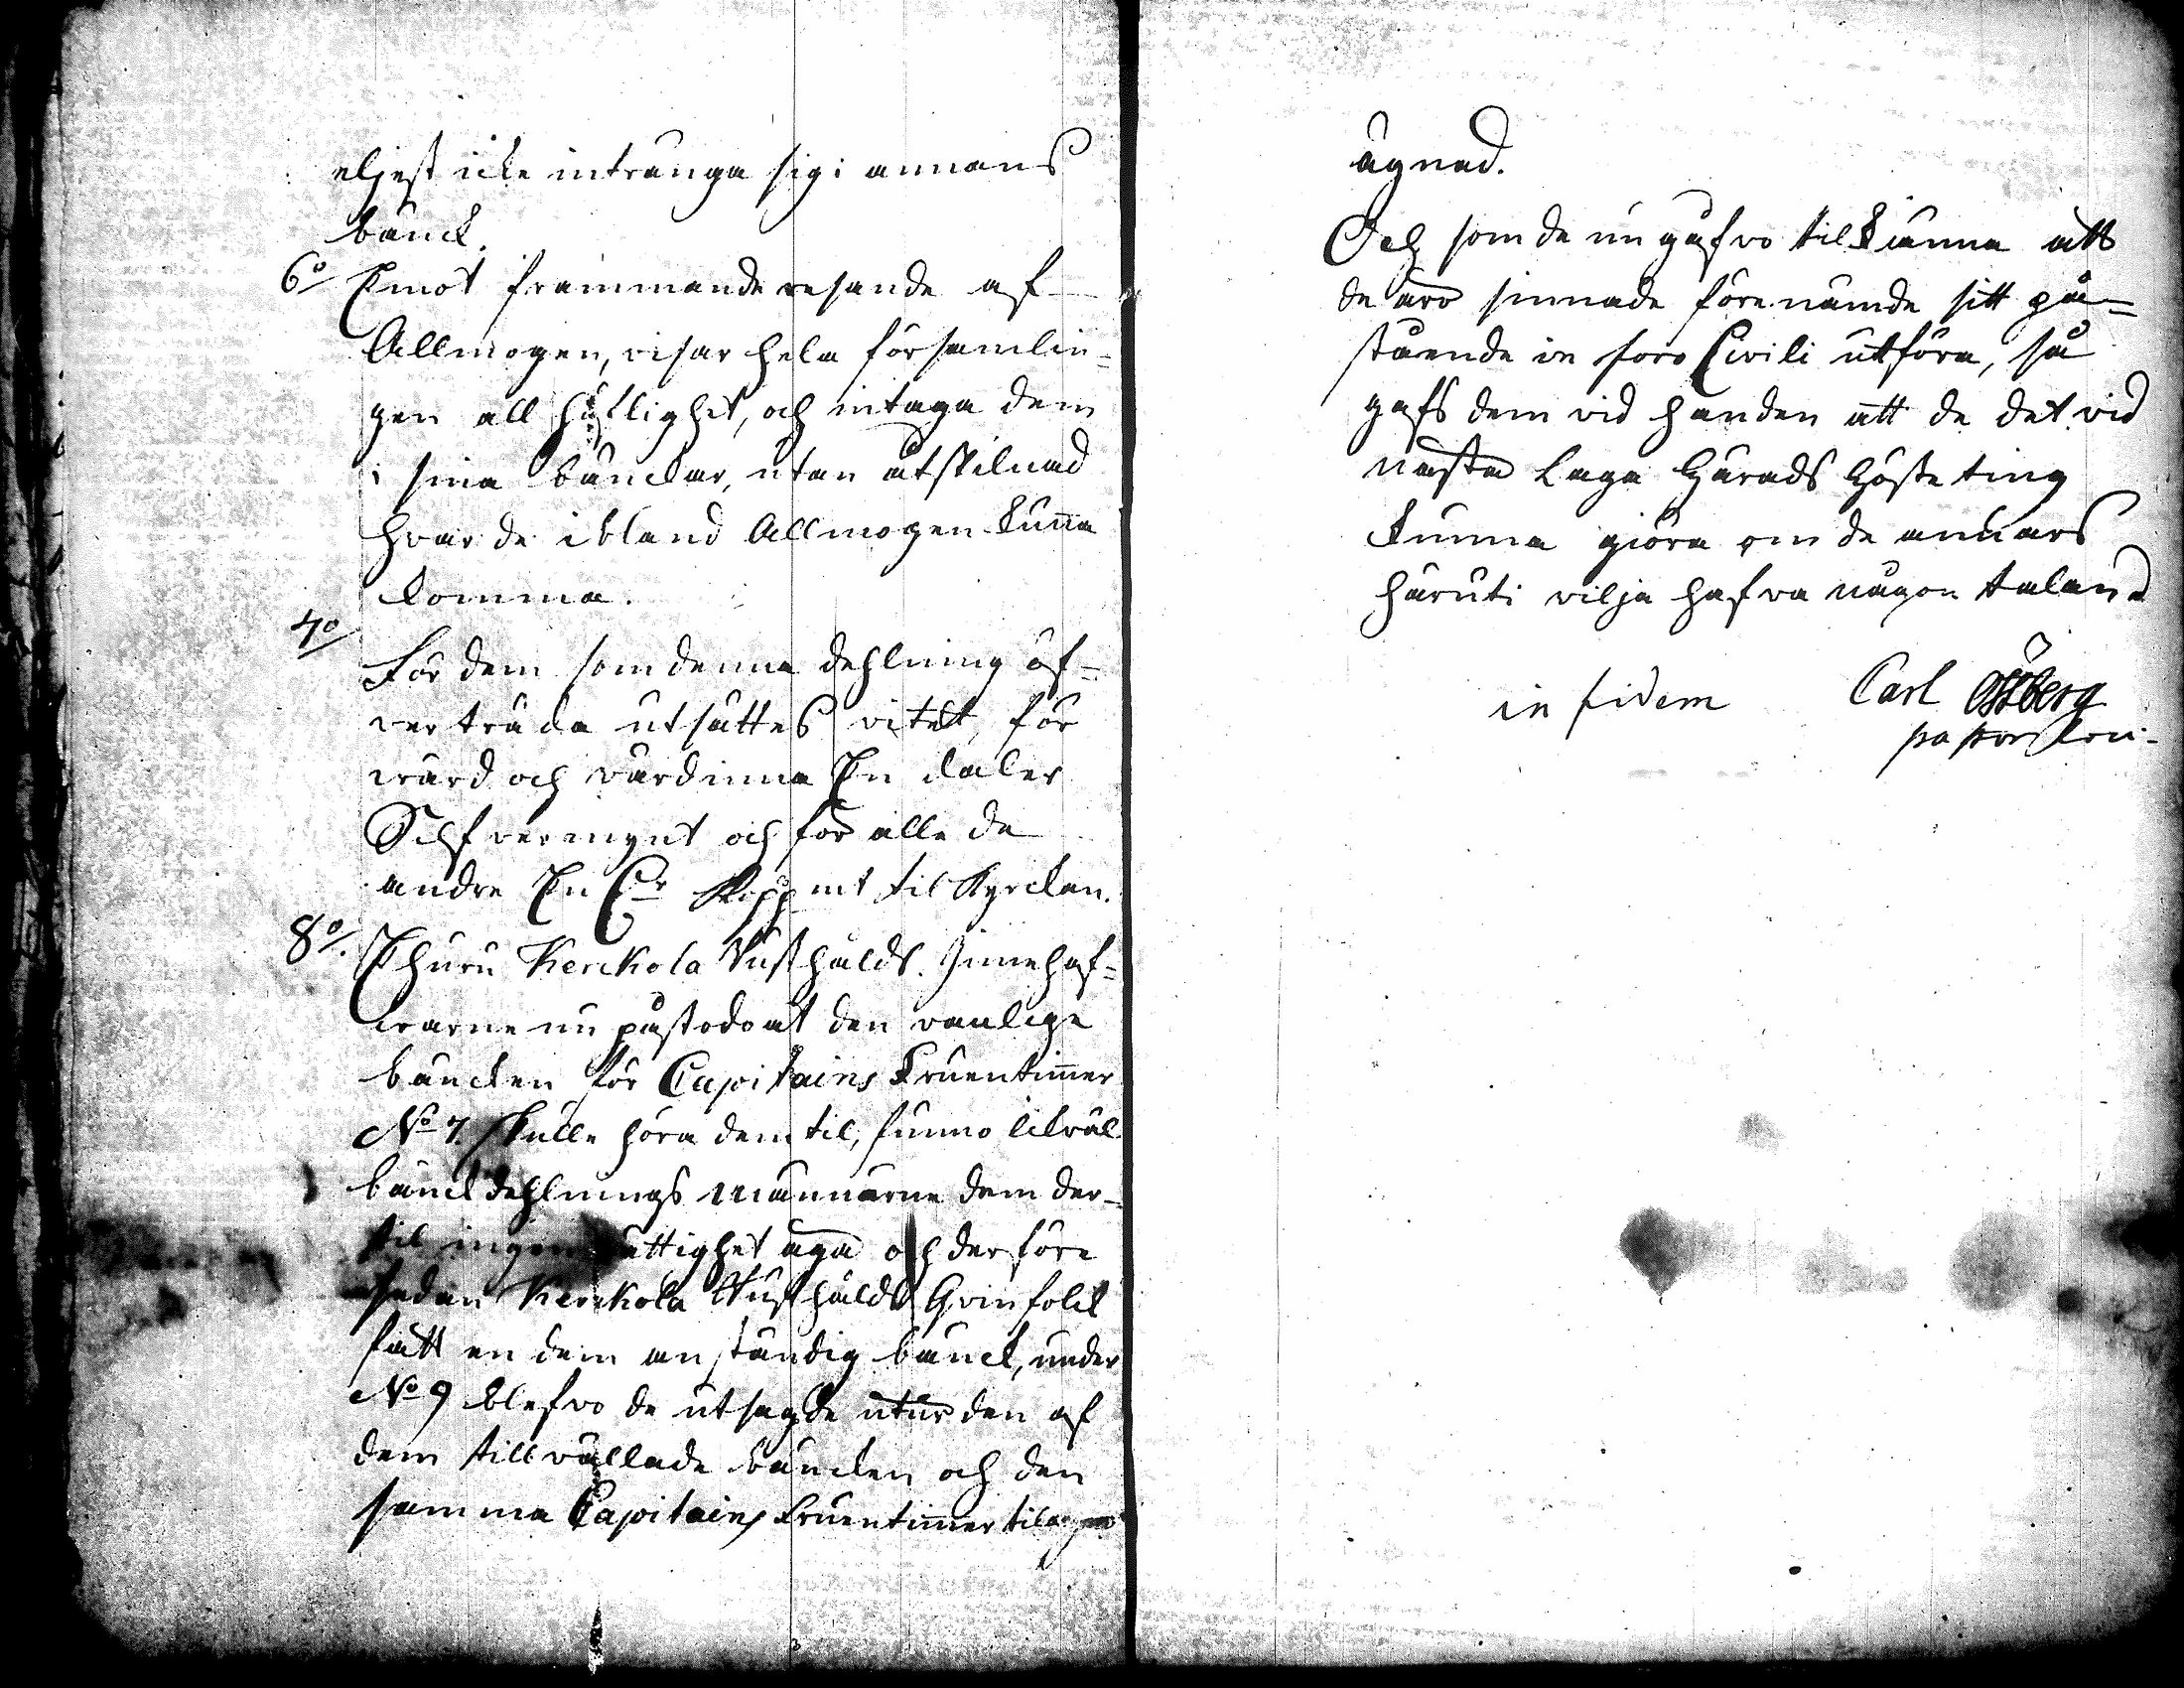 eljest icke intränga sig i annans
bänck.
6o/ Emot främmande resande af
Allmogen, visar hela församlin=
gen all höflighet, och intaga dem
i sina bänckar, utan åtskilnad
hvar de ibland Allmogen kunna
komma.
7o/
För dem som denna dehlning öf=
verträda utsättes vitet, för
värd och värdinna En daler
Silfvermynt och för alle de
andre En Dr Kopp mt til Kyrckan.
8o/. Ehuru Kerckola Rusthålds Innehaf=
warne nu påstodo at den vanlige
bäncken för Capitains Fruentimer
No 7. skulle höra dem til, funno likväl
bänckdehlnings männarne dem der-
til ingen rättighet äga och derföre
sedan Kerckola Rusthålds Qvinfolck
fått en dem anständig bänck, under
No 9 blefvo de utsagde utur den af
dem tillvällade bäncken och den
samma Capitains Fruentimer til
ägnad.
Och som de nu gåfvo tilkänna att
de äro sinnade förenämde sitt på=
stående in foro Civili utföra, så
gafs dem vid handen att de det vid
nästa Laga Härads Höste ting
kunna giöra om de annars
häruti vilja hafva någon talan
in fidem Carl Östberg